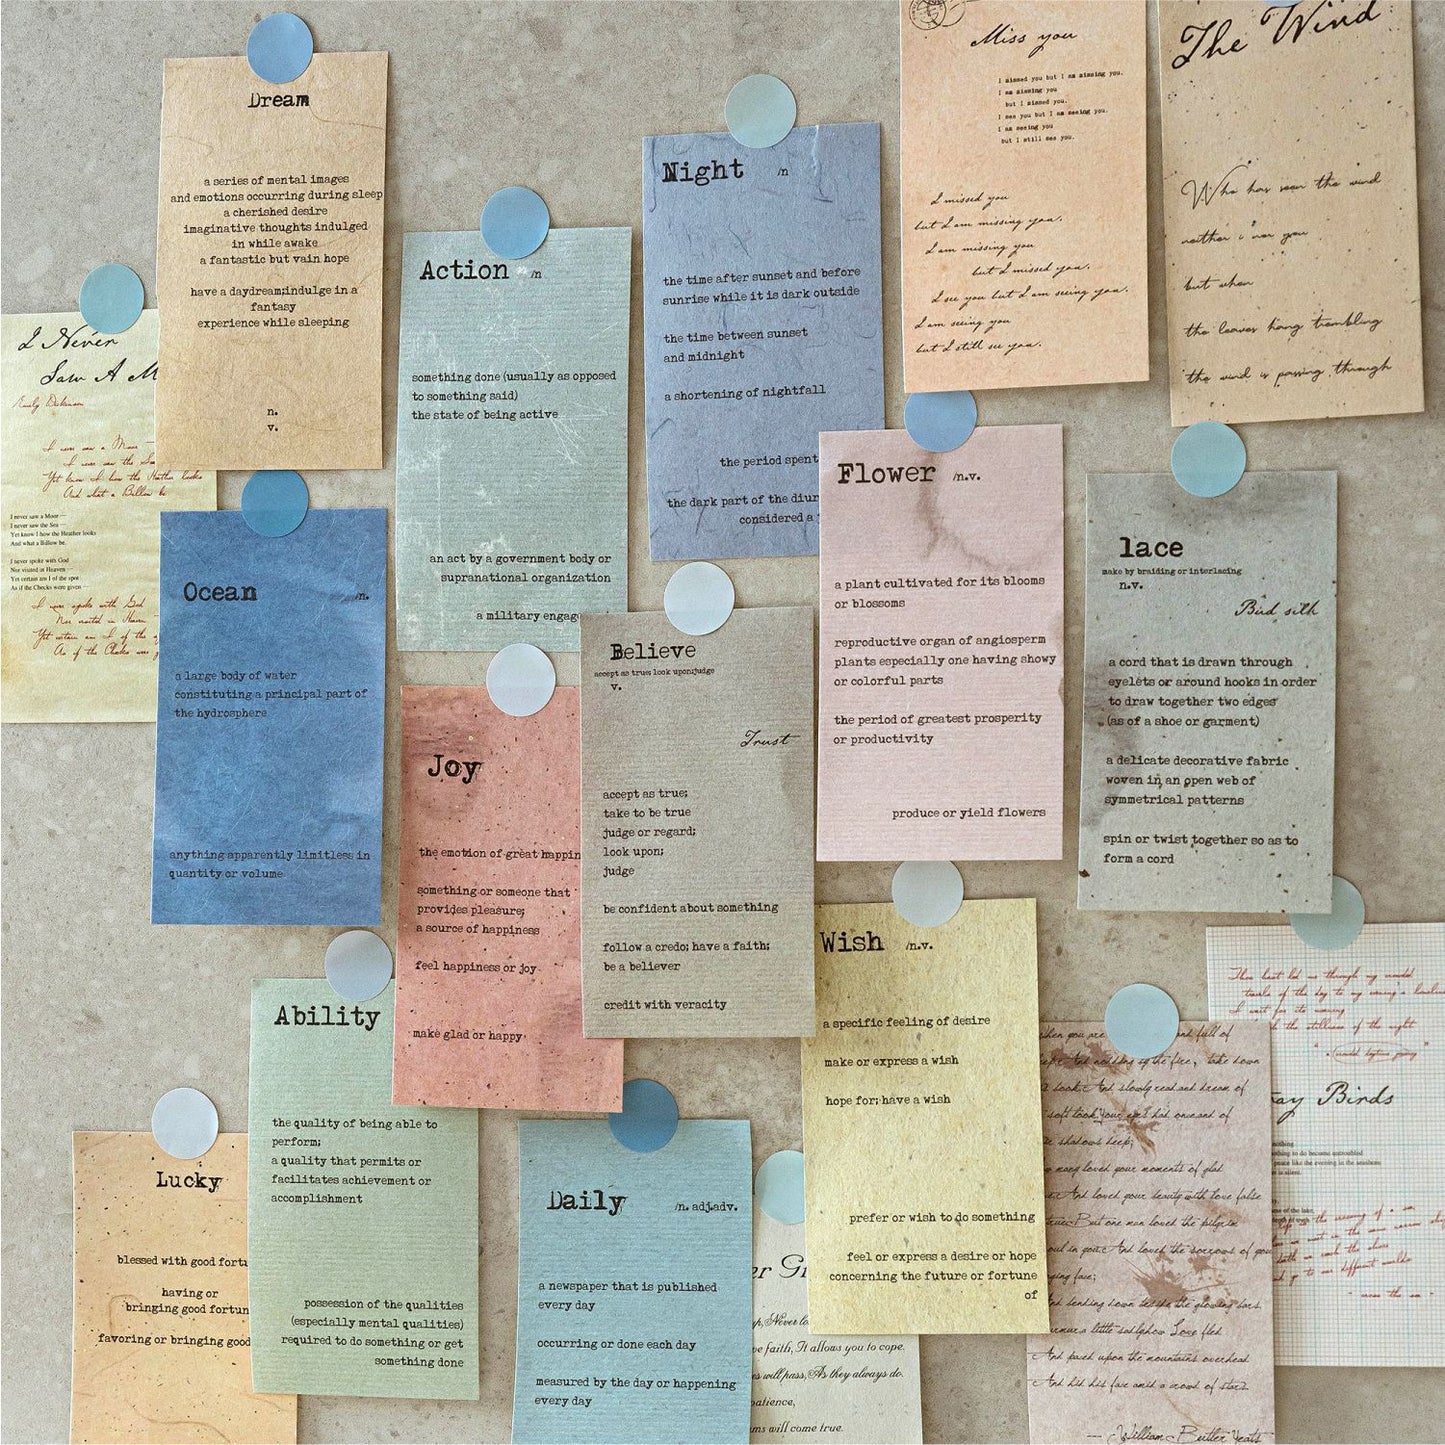 Dream
a series of mental images
and emotions occurring during sleep
a cherished desire
imaginative thoughts indulged
in while awake
a fantastic but vain hope
have a daydream;indulge in a
fantasy
experience while sleeping
n.
v.
Action /n
something done (usually as opposed
to something said)
the state of being active
an act by a government body or
supranational organization
a military engage
Night /n
the time after sunset and before
sunrise while it is dark outside
the time between sunset
and midnight
a shortening of nightfall
the period spent
the dark part of the diur
considered a
Miss you
I missed you but I am missing you.
I am missing you
but I missed you.
I see you but I am seeing you.
I am seeing you
but I still see you.
I missed you
but I am missing you.
I am missing you
but I missed you.
I see you but I am seeing you.
I am seeing you
but I still see you.
The Wind
Who has seen the wind
neither i nor you
but when
the leaves hang trembling
the wind is passing through
I Never
Saw A M
Emily Dickinson
I never saw a Moor —
I never saw the Sea
Yet know I how the Heather looks
And what a Billow be
I never saw a Moor —
I never saw the Sea —
Yet know I how the Heather looks
And what a Billow be.
I never spoke with God
Nor visited in Heaven —
Yet certain am I of the spot
As if the Checks were given
I never spoke with God
Nor visited in Heaven
Yet certain am I of the
As if the Checks were
Ocean /n.
a large body of water
constituting a principal part of
the hydrosphere
anything apparently limitless in
quantity or volume
Joy
the emotion of great happin
something or someone that
provides pleasure;
a source of happiness
feel happiness or joy
make glad or happy
Believe
accept as true; look upon;judge
v.
Trust
accept as true;
take to be true
judge or regard;
look upon;
judge
be confident about something
follow a credo; have a faith;
be a believer
credit with veracity
Flower /n.v.
a plant cultivated for its blooms
or blossoms
reproductive organ of angiosperm
plants especially one having showy
or colorful parts
the period of greatest prosperity
or productivity
produce or yield flowers
lace
make by braiding or interlacing
n.v.
Bird silk
a cord that is drawn through
eyelets or around hooks in order
to draw together two edges
(as of a shoe or garment)
a delicate decorative fabric
woven in an open web of
symmetrical patterns
spin or twist together so as to
form a cord
Ability
the quality of being able to
perform;
a quality that permits or
facilitates achievement or
accomplishment
possession of the qualities
(especially mental qualities)
required to do something or get
something done
Lucky
blessed with good fortu
having or
bringing good fortun
favoring or bringing good
Daily /n. adj.adv.
a newspaper that is published
every day
occurring or done each day
measured by the day or happening
every day
er Gi
p, Never lo
ve faith, It allows you to cope.
es will pass, As they always do.
patience,
ms will come true.
Wish /n.v.
a specific feeling of desire
make or express a wish
hope for; have a wish
prefer or wish to do something
feel or express a desire or hope
concerning the future or fortune
of
when you are and full of
And nodding by the fire, take down
book, And slowly read and dream of
soft look your eyes had once and of
shadows deep;
many loved your moments of glad
And loved your beauty with love false
true; But one man loved the pilgrim
soul in you; And loved the sorrows of your
ging face;
And bending down beside the glowing bars,
murmur a little sadly, how Love fled
And paced upon the mountains overhead
And hid his face amid a crowd of stars.
— William Butler Yeats
Thou hast led me through my crowded
travels of the day to my evening's loneliness
I wait for its meaning
the stillness of the night
ray Birds
nothing
nothing to do become untroubled
peace like the evening in the seashore
is silent.